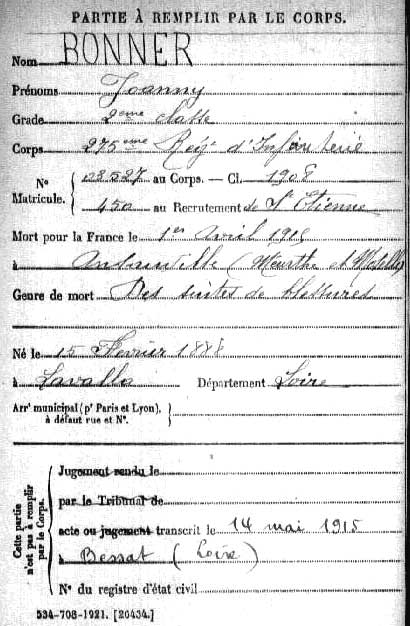 PARTIE À REMPLIR PAR LE CORPS.
Nom BONNER
Prénoms Joanny
Grade 2eme classe
Corps 275eme Reg. d'Infanterie
Nº 03527 au Corps. — Cl. 1908
Matricule. 450 au Recrutement de St Etienne
Mort pour la France le 1er Avril 1915
à (Meurthe et Moselle)
Genre de mort Des suites de blessures
Né le 15 Février 1888
à Lavalla Département Loire
Arrt municipal (pr Paris et Lyon),
à défaut rue et Nº.
Cette partie
n'est pas à remplir
par le Corps.
Jugement rendu le
par le Tribunal de
acte ou jugement transcrit le 14 mai 1915
à Bessat (Loire)
Nº du registre d'état civil
534-708-1921. [26434.]